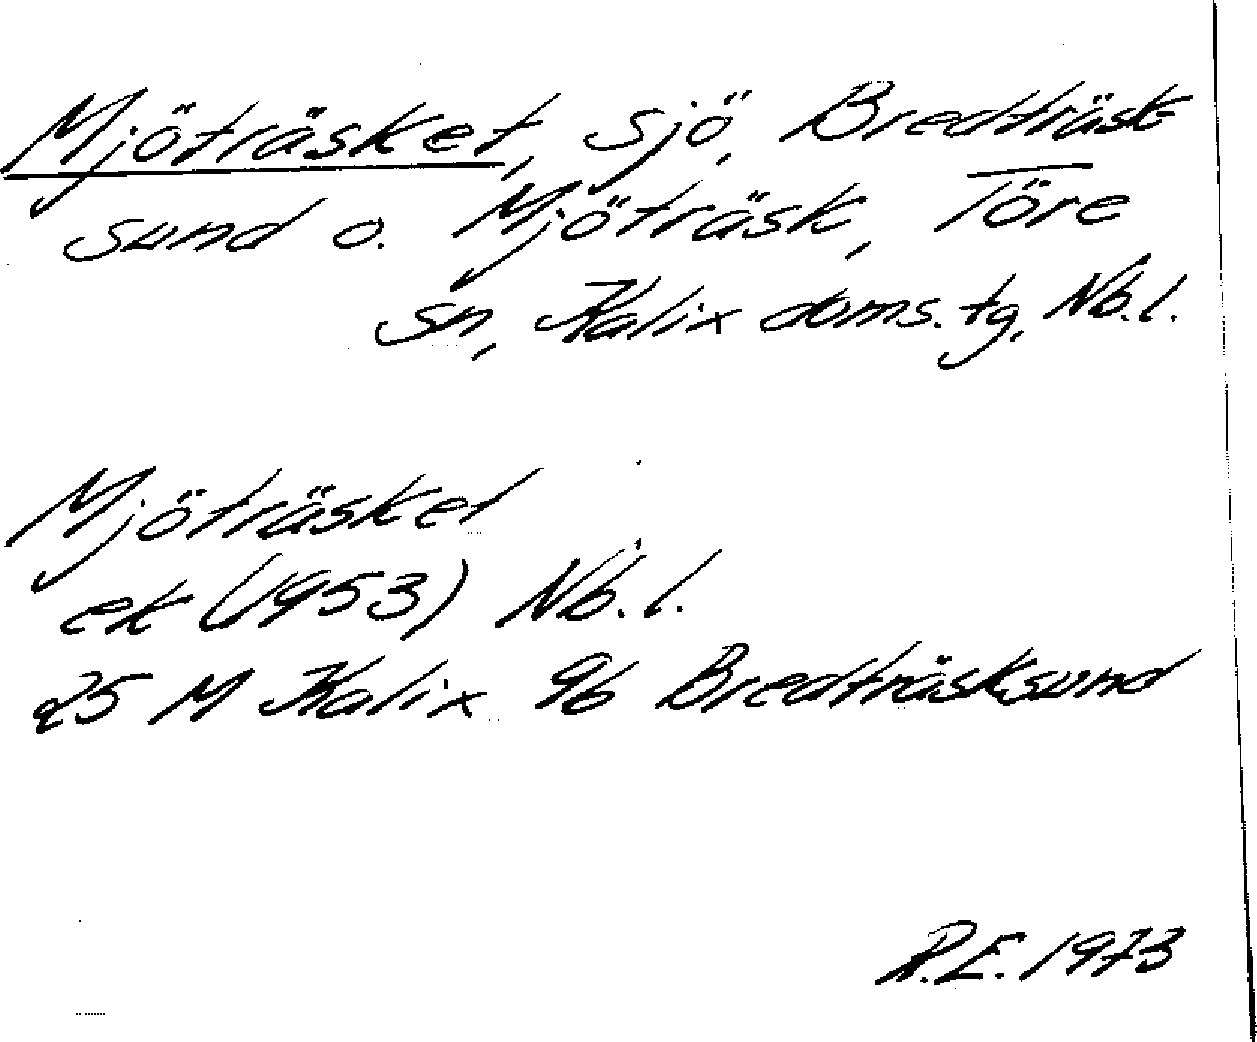 Mjöträsket, sjö, Bredträsk
sund o. Mjöträsk, Töre
sn, Kalix doms. tg, Nb. l.
Mjöträsket
ek (1953) Nb. l.
25 M Kalix 9b Bredträsksund
R.E. 1973